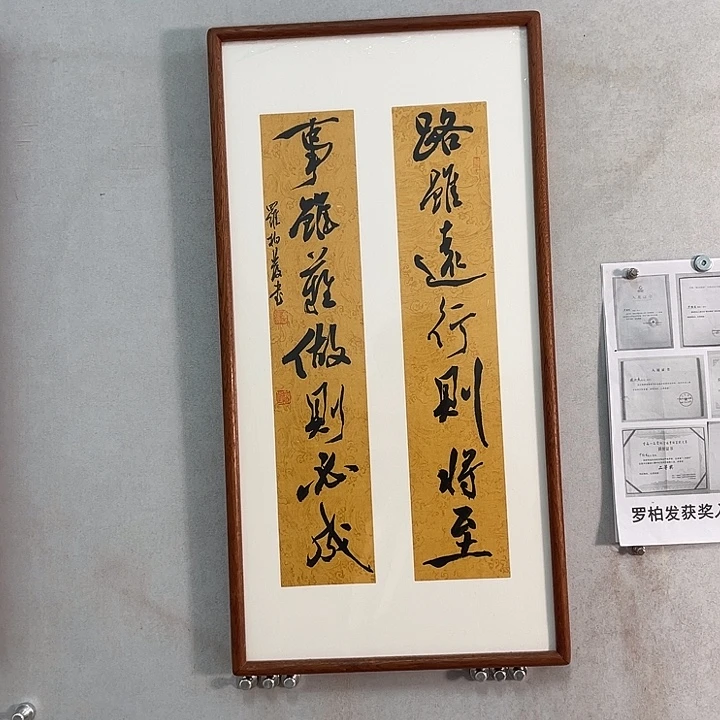 路雖遠行則將至
事雖難做則必成
羅柏發書
罗柏发获奖
二等奖